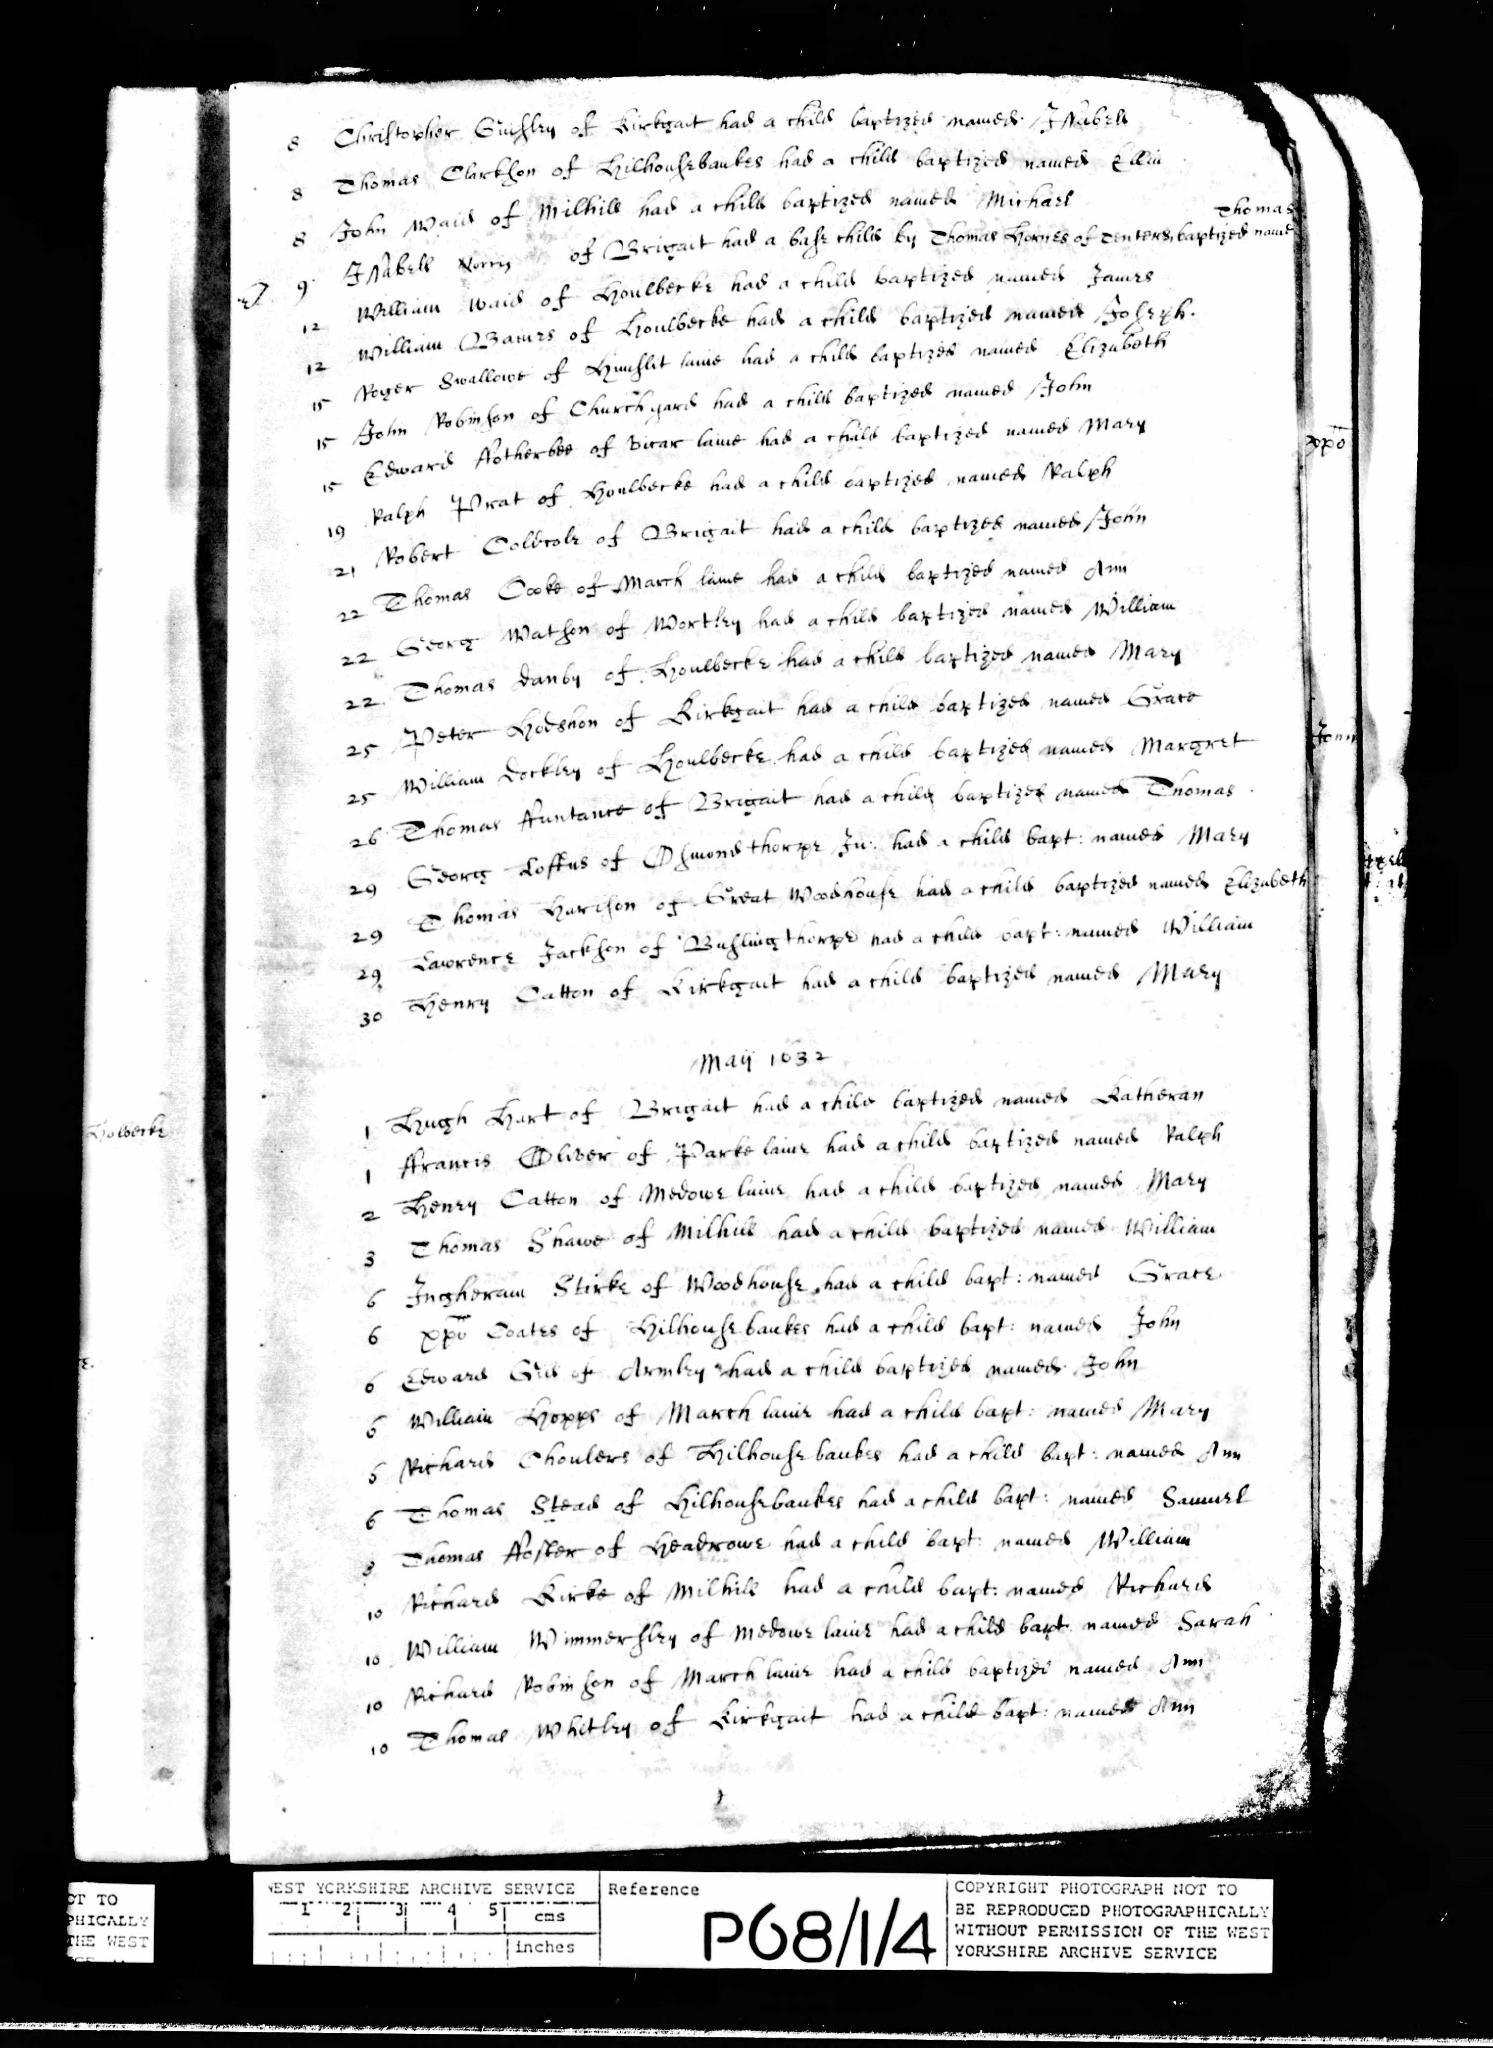 8 Christopher Guishley of Kirkgait had a child baptized named Isabell
8 Thomas Clarkson of Hilhousebankes had a child baptized named Ellin
8 John Waid of Milhill had a child baptized named Michael
Thomas
9 Isabell Norris of Brigait had a base child by Thomas Hornes of Tenters, baptized name
12 William Waid of Houlbecke had a child baptized named James
12 William Baines of Houlbecke had a child baptized named Joseph.
15 Roger Swallowe of Hunslit laine had a child baptized named Elizabeth
15 John Robinson of Churchyard had a child baptized named John
15 Edward ffotherbee of Vicar laine had a child baptized named Mary
19 Ralph Prat of Houlbecke had a child baptized named Ralph
21 Robert Coldcole of Brigait had a child baptized named John
22 Thomas Cooke of March laine had a child baptized named Ann
22 Georg Watson of Wortley had a child baptized named William
22 Thomas Danby of Houlbecke had a child baptized named Mary
25 Peter Hodshon of Kirkgait had a child baptized named Grace
25 William Lockley of Houlbecke had a child baptized named Margret
26 Thomas ffuntance of Brigait had a child baptized named Thomas
29 Georg Loftus of Osmondthorpe Ju: had a child bapt: named Mary
29 Thomas Harison of Great Woodhouse had a child baptized named Elizabeth
29 Lawrence Jackson of Buslingthorpe had a child bapt: named William
30 Henry Catton of Kirkgait had a child baptized named Mary
Maij 1632
1 Hugh Hart of Brigait had a child baptized named Katheran
1 ffrancis Oliver of Parke laine had a child baptized named Ralph
2 Henry Catton of Medowe laine had a child baptized named Mary
3 Thomas Shawe of Milhill had a child baptized named William
6 Ingheram Stirke of Woodhouse had a child bapt: named Grace
6 xpo Coates of Hilhousebankes had a child bapt: named John
6 Edward Gid of Armley had a child baptized named John
6 William Hopps of March laine had a child bapt: named Mary
6 Richard Choulers of Hilhousebankes had a child bapt: named Ann
6 Thomas Stead of Hilhousebankes had a child bapt: named Samuel
Thomas ffoster of Headrowe had a child bapt: named William
10 Richard Kirke of Milhill had a child bapt: named Richard
10 William Wimmersley of Medowe laine had a child bapt named Sarah
10 Richard Robinson of March laine had a child baptized named Ann
10 Thomas Whitley of Kirkgait had a child bapt: named Ann
Holbecke
xpo
John
WEST YORKSHIRE ARCHIVE SERVICE
1 2 3 4 5 cms
inches
Reference
P68/1/4
COPYRIGHT PHOTOGRAPH NOT TO
BE REPRODUCED PHOTOGRAPHICALLY
WITHOUT PERMISSION OF THE WEST
YORKSHIRE ARCHIVE SERVICE
OT TO
PHICALLY
THE WEST